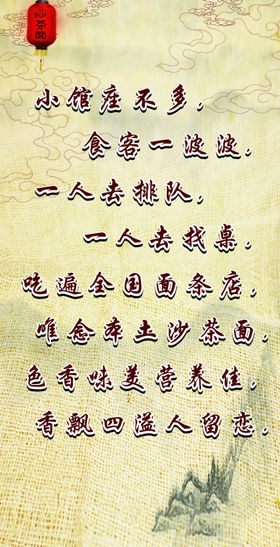 沙茶面
小馆座不多,
食客一波波,
一人去排队,
一人去找桌,
吃遍全国面条店,
唯念本土沙茶面,
色香味美营养佳,
香飘四溢人留恋,